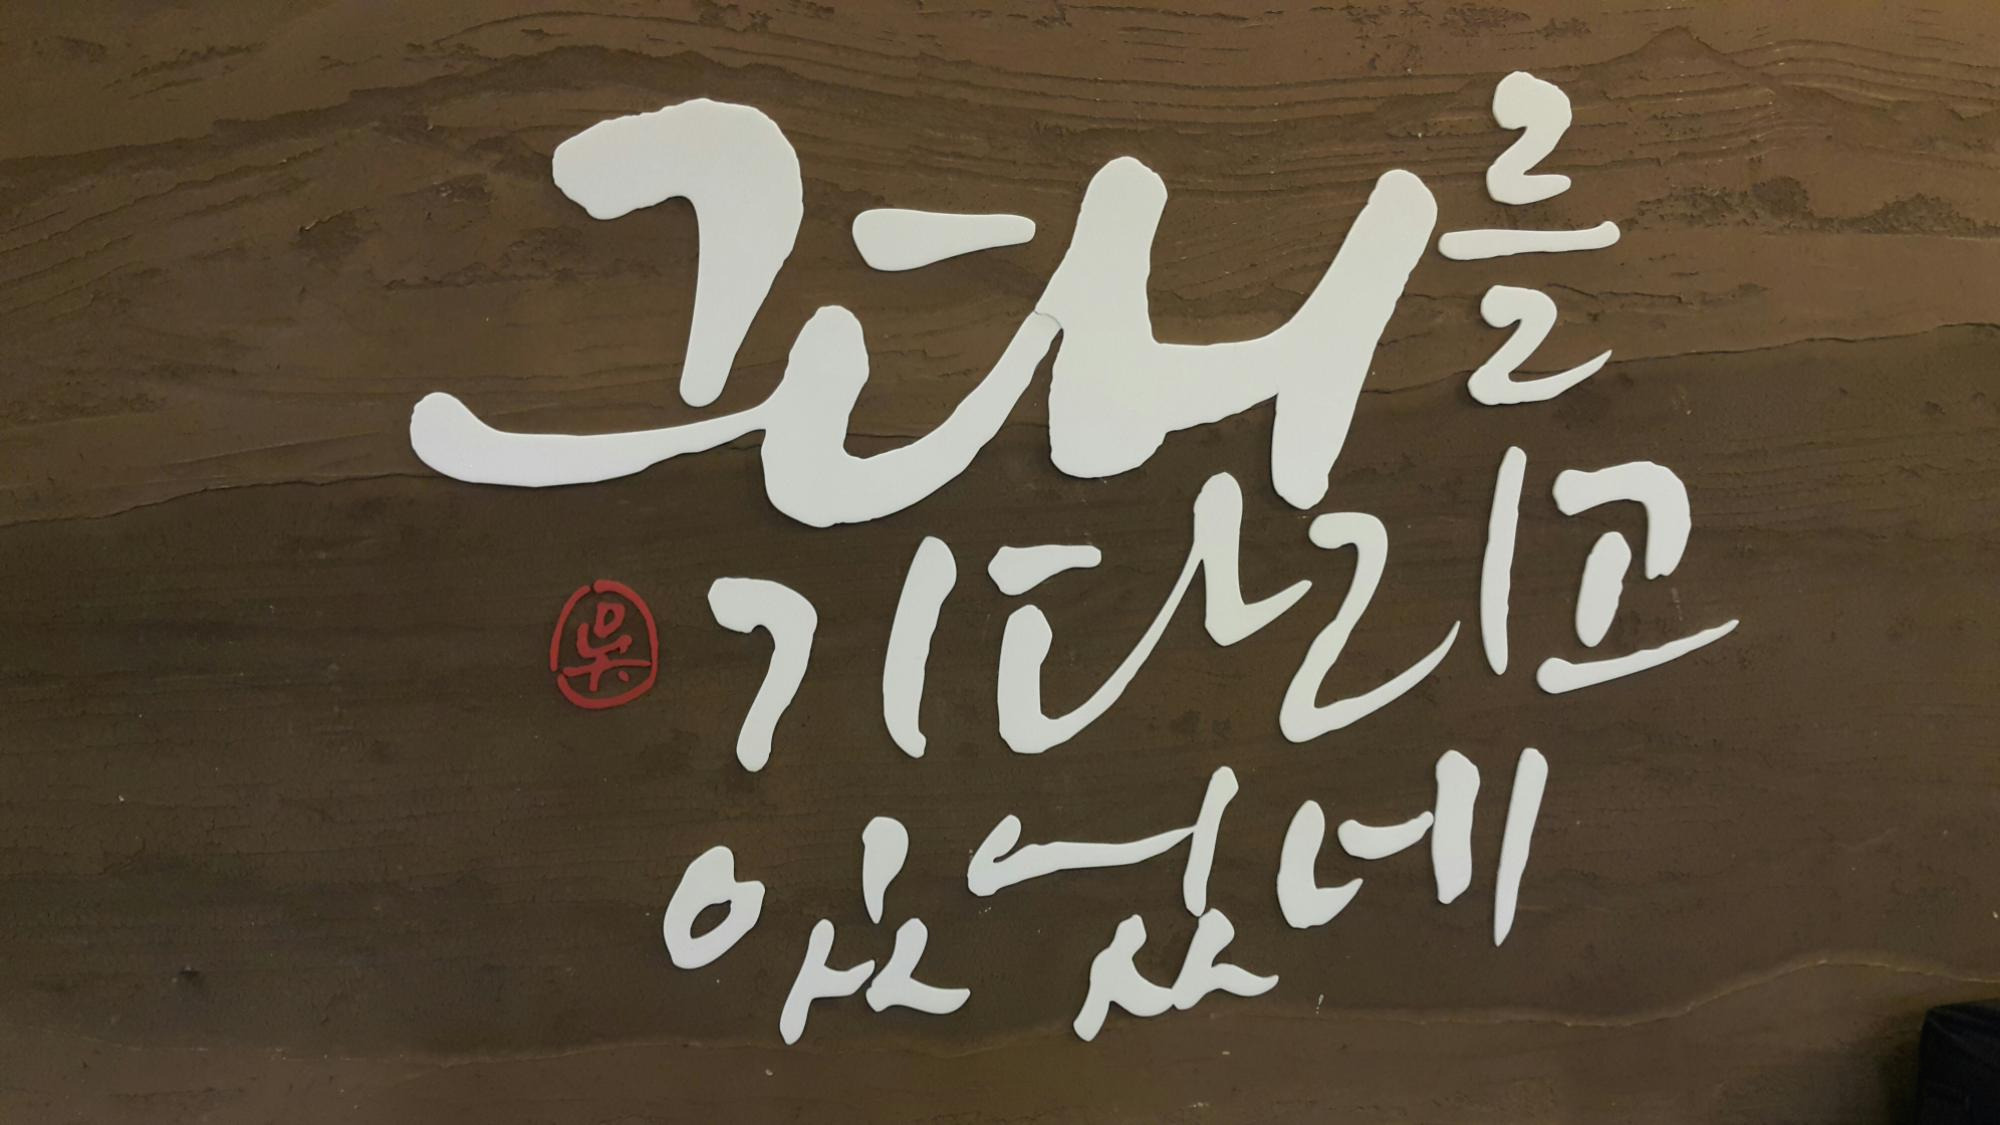 그대를
기다리고
있었네
吳